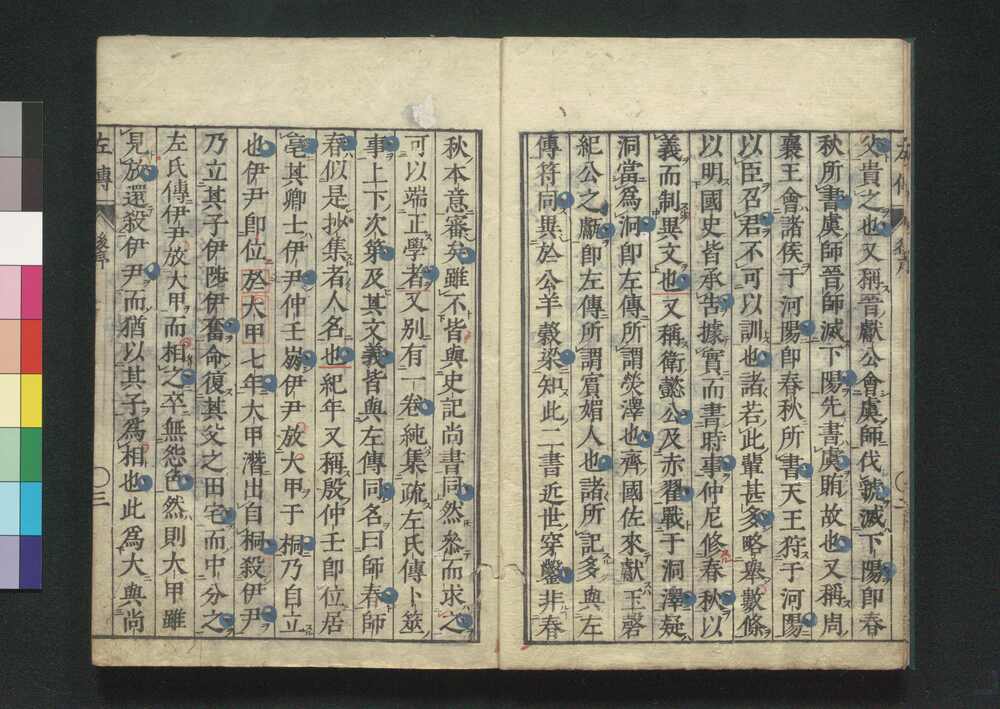 父貴之也又稱晉獻公會虞師伐虢滅下陽即春
秋所書虞師晉師滅下陽先書虞賄故也又稱周
襄王會諸侯于河陽即春秋所書天王狩于河陽
以臣召君不可以訓也諸若此輩甚多略舉數條
以明國史皆承告據實而書時事仲尼修春秋以
義而制異文也又稱衛懿公及赤翟戰于洞澤疑
洞當爲泂即左傳所謂熒澤也齊國佐來獻玉磬
紀公之甗即左傳所謂賓媚人也諸所記多與左
傳符同異於公羊穀梁知此二書近世穿鑿非春
秋本意審矣雖不皆與史記尚書同然叅而求之
可以端正學者又別有一卷純集疏左氏傳卜筮
事上下次第及其文義皆與左傳同名曰師春師
春似是抄集者人名也紀年又稱殷仲壬即位居
亳其卿士伊尹仲壬崩伊尹放大甲于桐乃自立
也伊尹即位於大甲七年大甲潛出自桐殺伊尹
乃立其子伊陟伊奮命復其父之田宅而中分之
左氏傳伊尹放大甲而相之卒無怨色然則大甲雖
見放還殺伊尹而猶以其子爲相也此爲大與尚
左傳
三